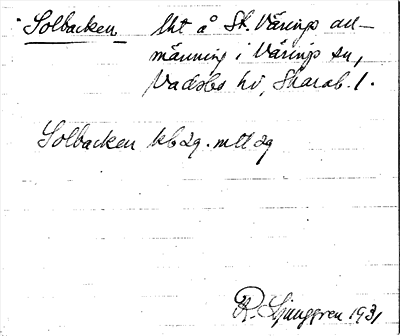 Solbacken lht å St. Värings all-
männing i Värings sn,
Vadsbo hd, Skarab. l.
Solbacken kbäg. mtl äg
R. Ljunggren 1931